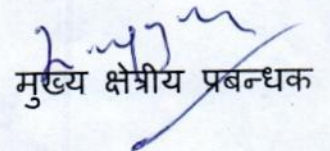 मुख्य क्षेत्रीय प्रबन्धक